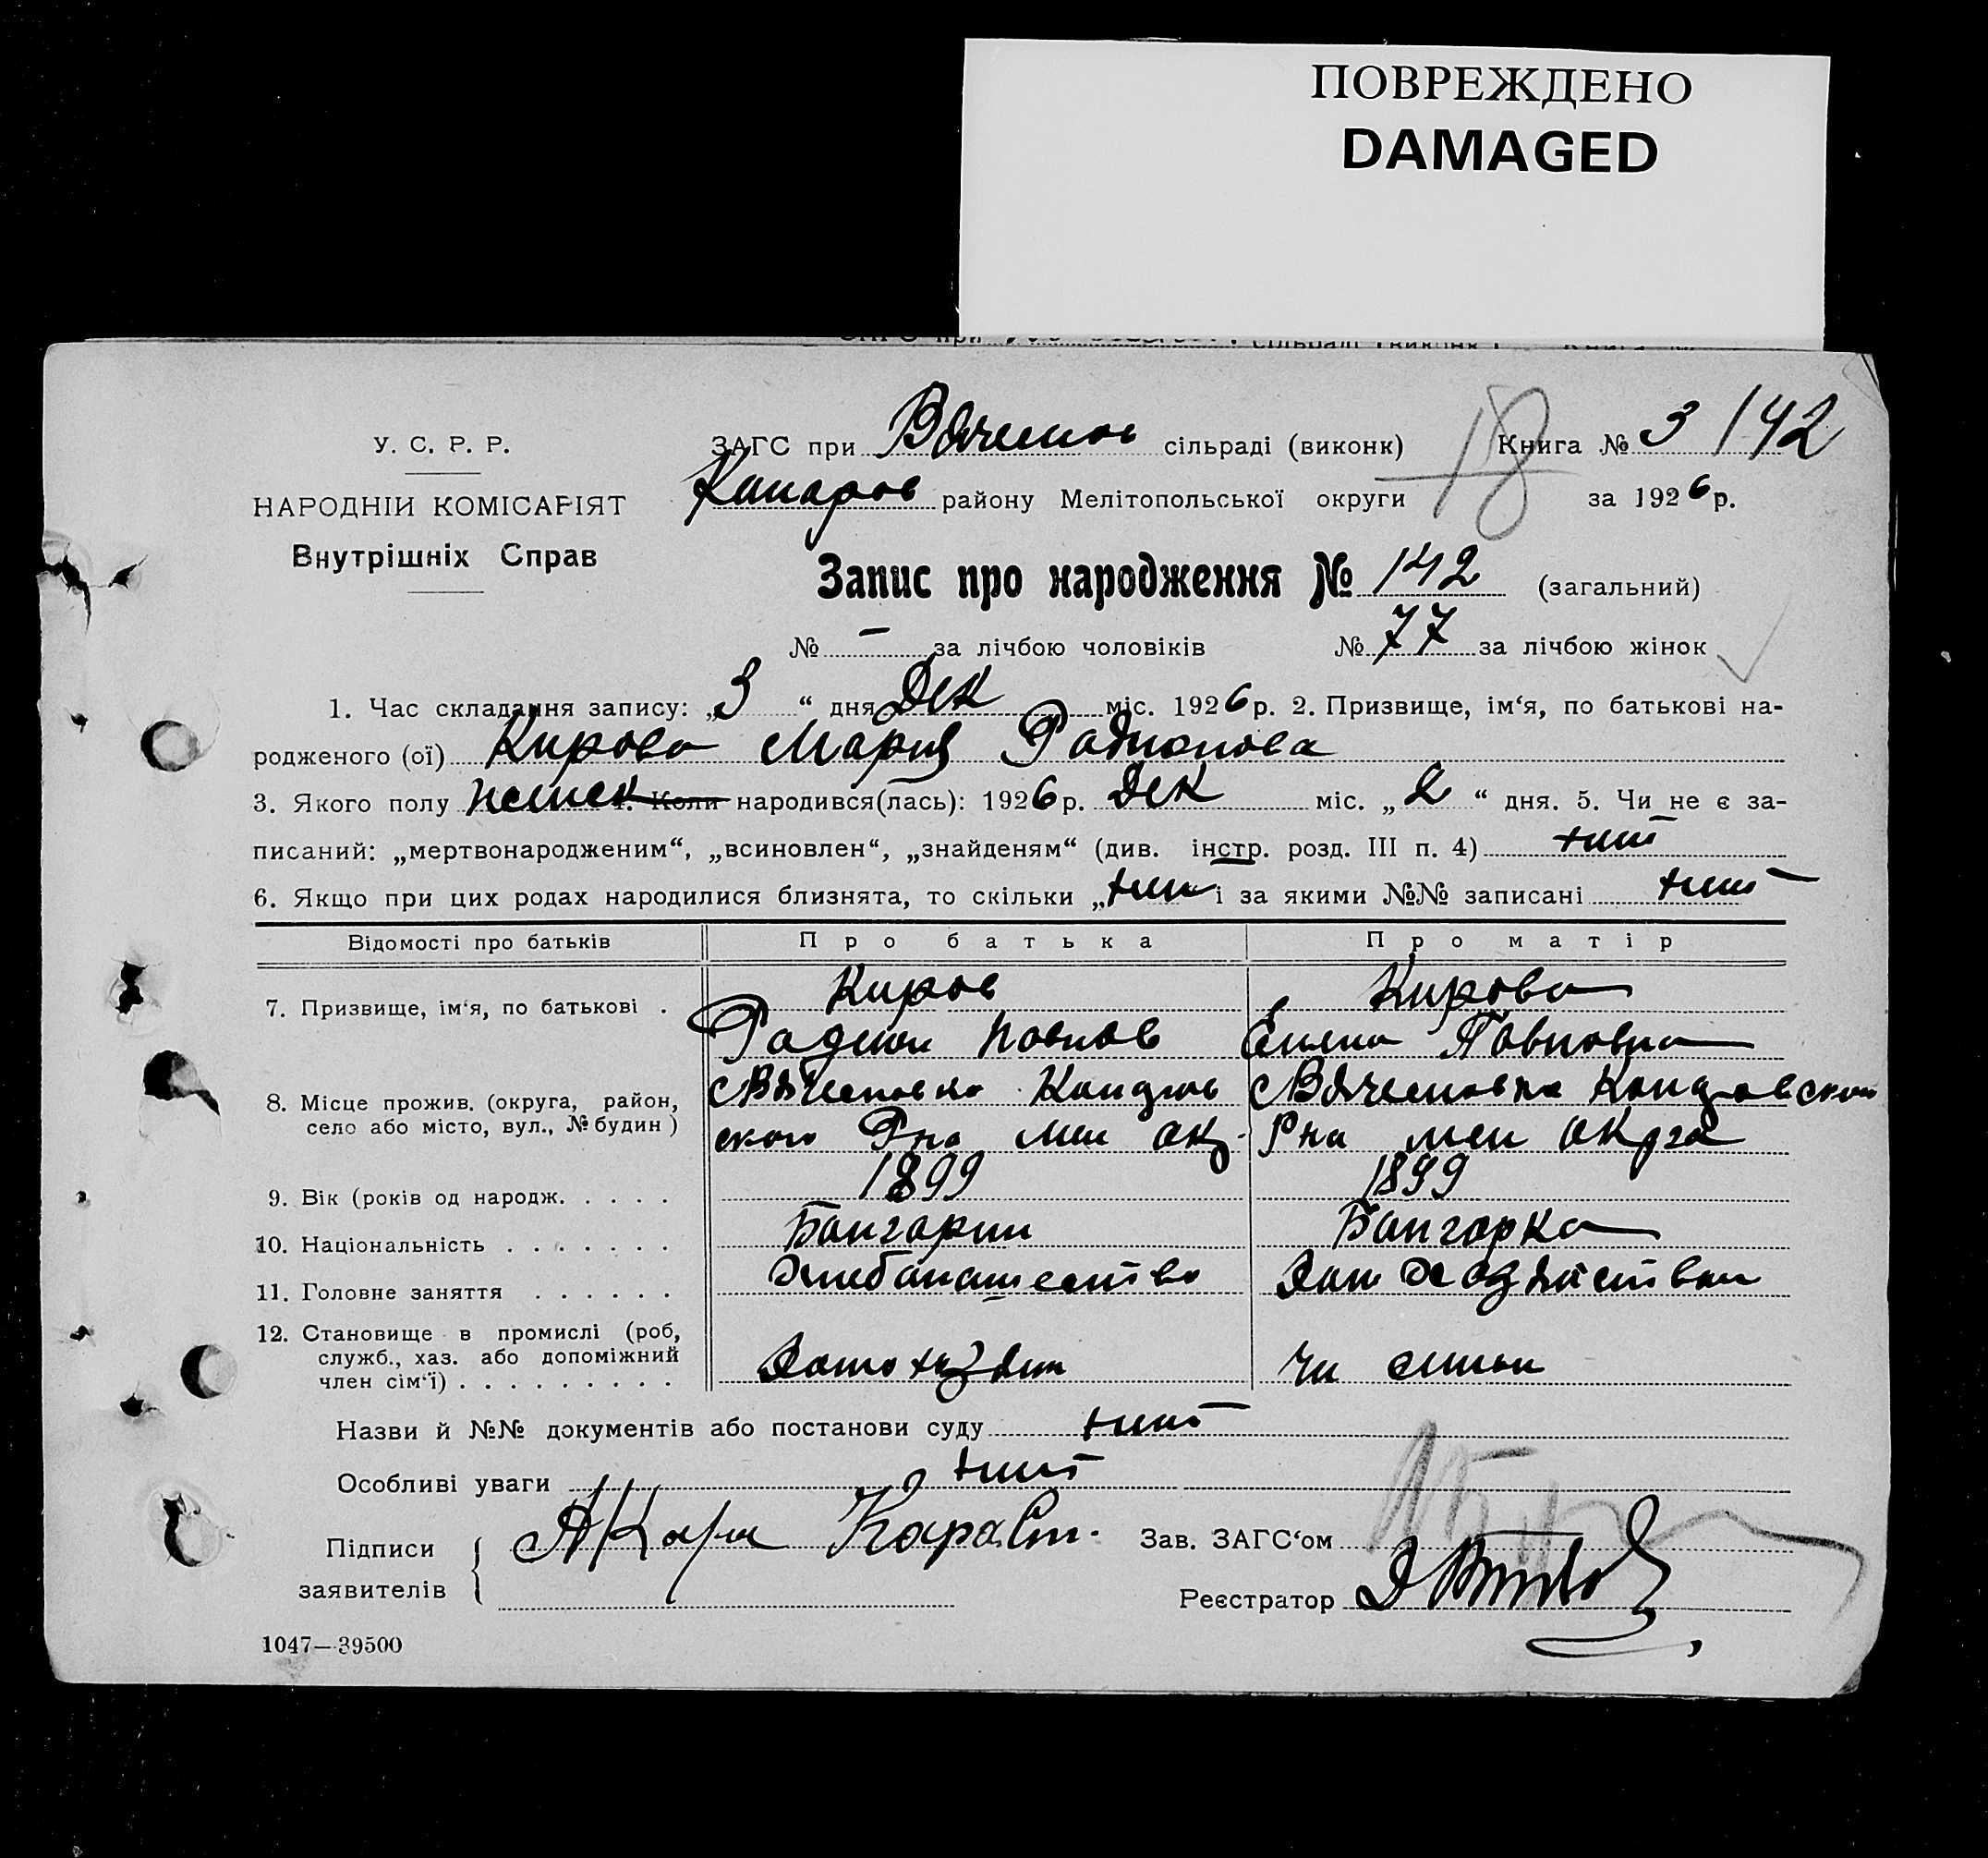 ПОВРЕЖДЕНО
DAMAGED
У. С. Р. Р.
НАРОДНІЙ КОМІСАРІЯТ
Внутрішніх Справ
ЗАГС при Вячеслов сільраді (виконк) 18 Книга № 3 /42
району Мелітопольської округи за 1926 р.
Запис про народження № 142 (загальний)
№ – за лічбою чоловіків № 77 за лічбою жінок
1. Час складання запису: „3“ дня Дек міс. 1926 р. 2. Призвище, ім‘я, по батькові на-
родженого (ої) Кирова Мария Радионова
3. Якого полу женск 4. Коли народився(лась): 1926 р. Дек міс. „2“ дня. 5. Чи не є за-
писаний: „мертвонародженим“, „всиновлен“, „знайденям“ (див. інстр. розд. III п. 4) нит
6. Якщо при цих родах народилися близнята, то скільки „ і за якими №№ записані нит
Відомості про батьків Про батька Про матір
7. Призвище, ім‘я, по батькові . Киров Кирова
Радион Павлов Елена Павловна
8. Місце прожив. (округа, район, село або місто, вул., № будин) с Вячеслов с Вячеславка
Рна мел Рна мел окрга
9. Вік (років од народж. . . . . 1899 1899
10. Національність . . . . . . . Болгарин Болгарка
11. Головне заняття . . . . . . Хлебопашество Дом хозяйством
12. Становище в промислі (роб, служб., хаз. або допоміжний член сім‘ї) . . . . . . . . . Домохозяин Чл семьи
Назви й №№ документів або постанови суду нит
Особливі уваги нит
Підписи заявителів Зав. ЗАГС‘ом
Реєстратор
1047—39500